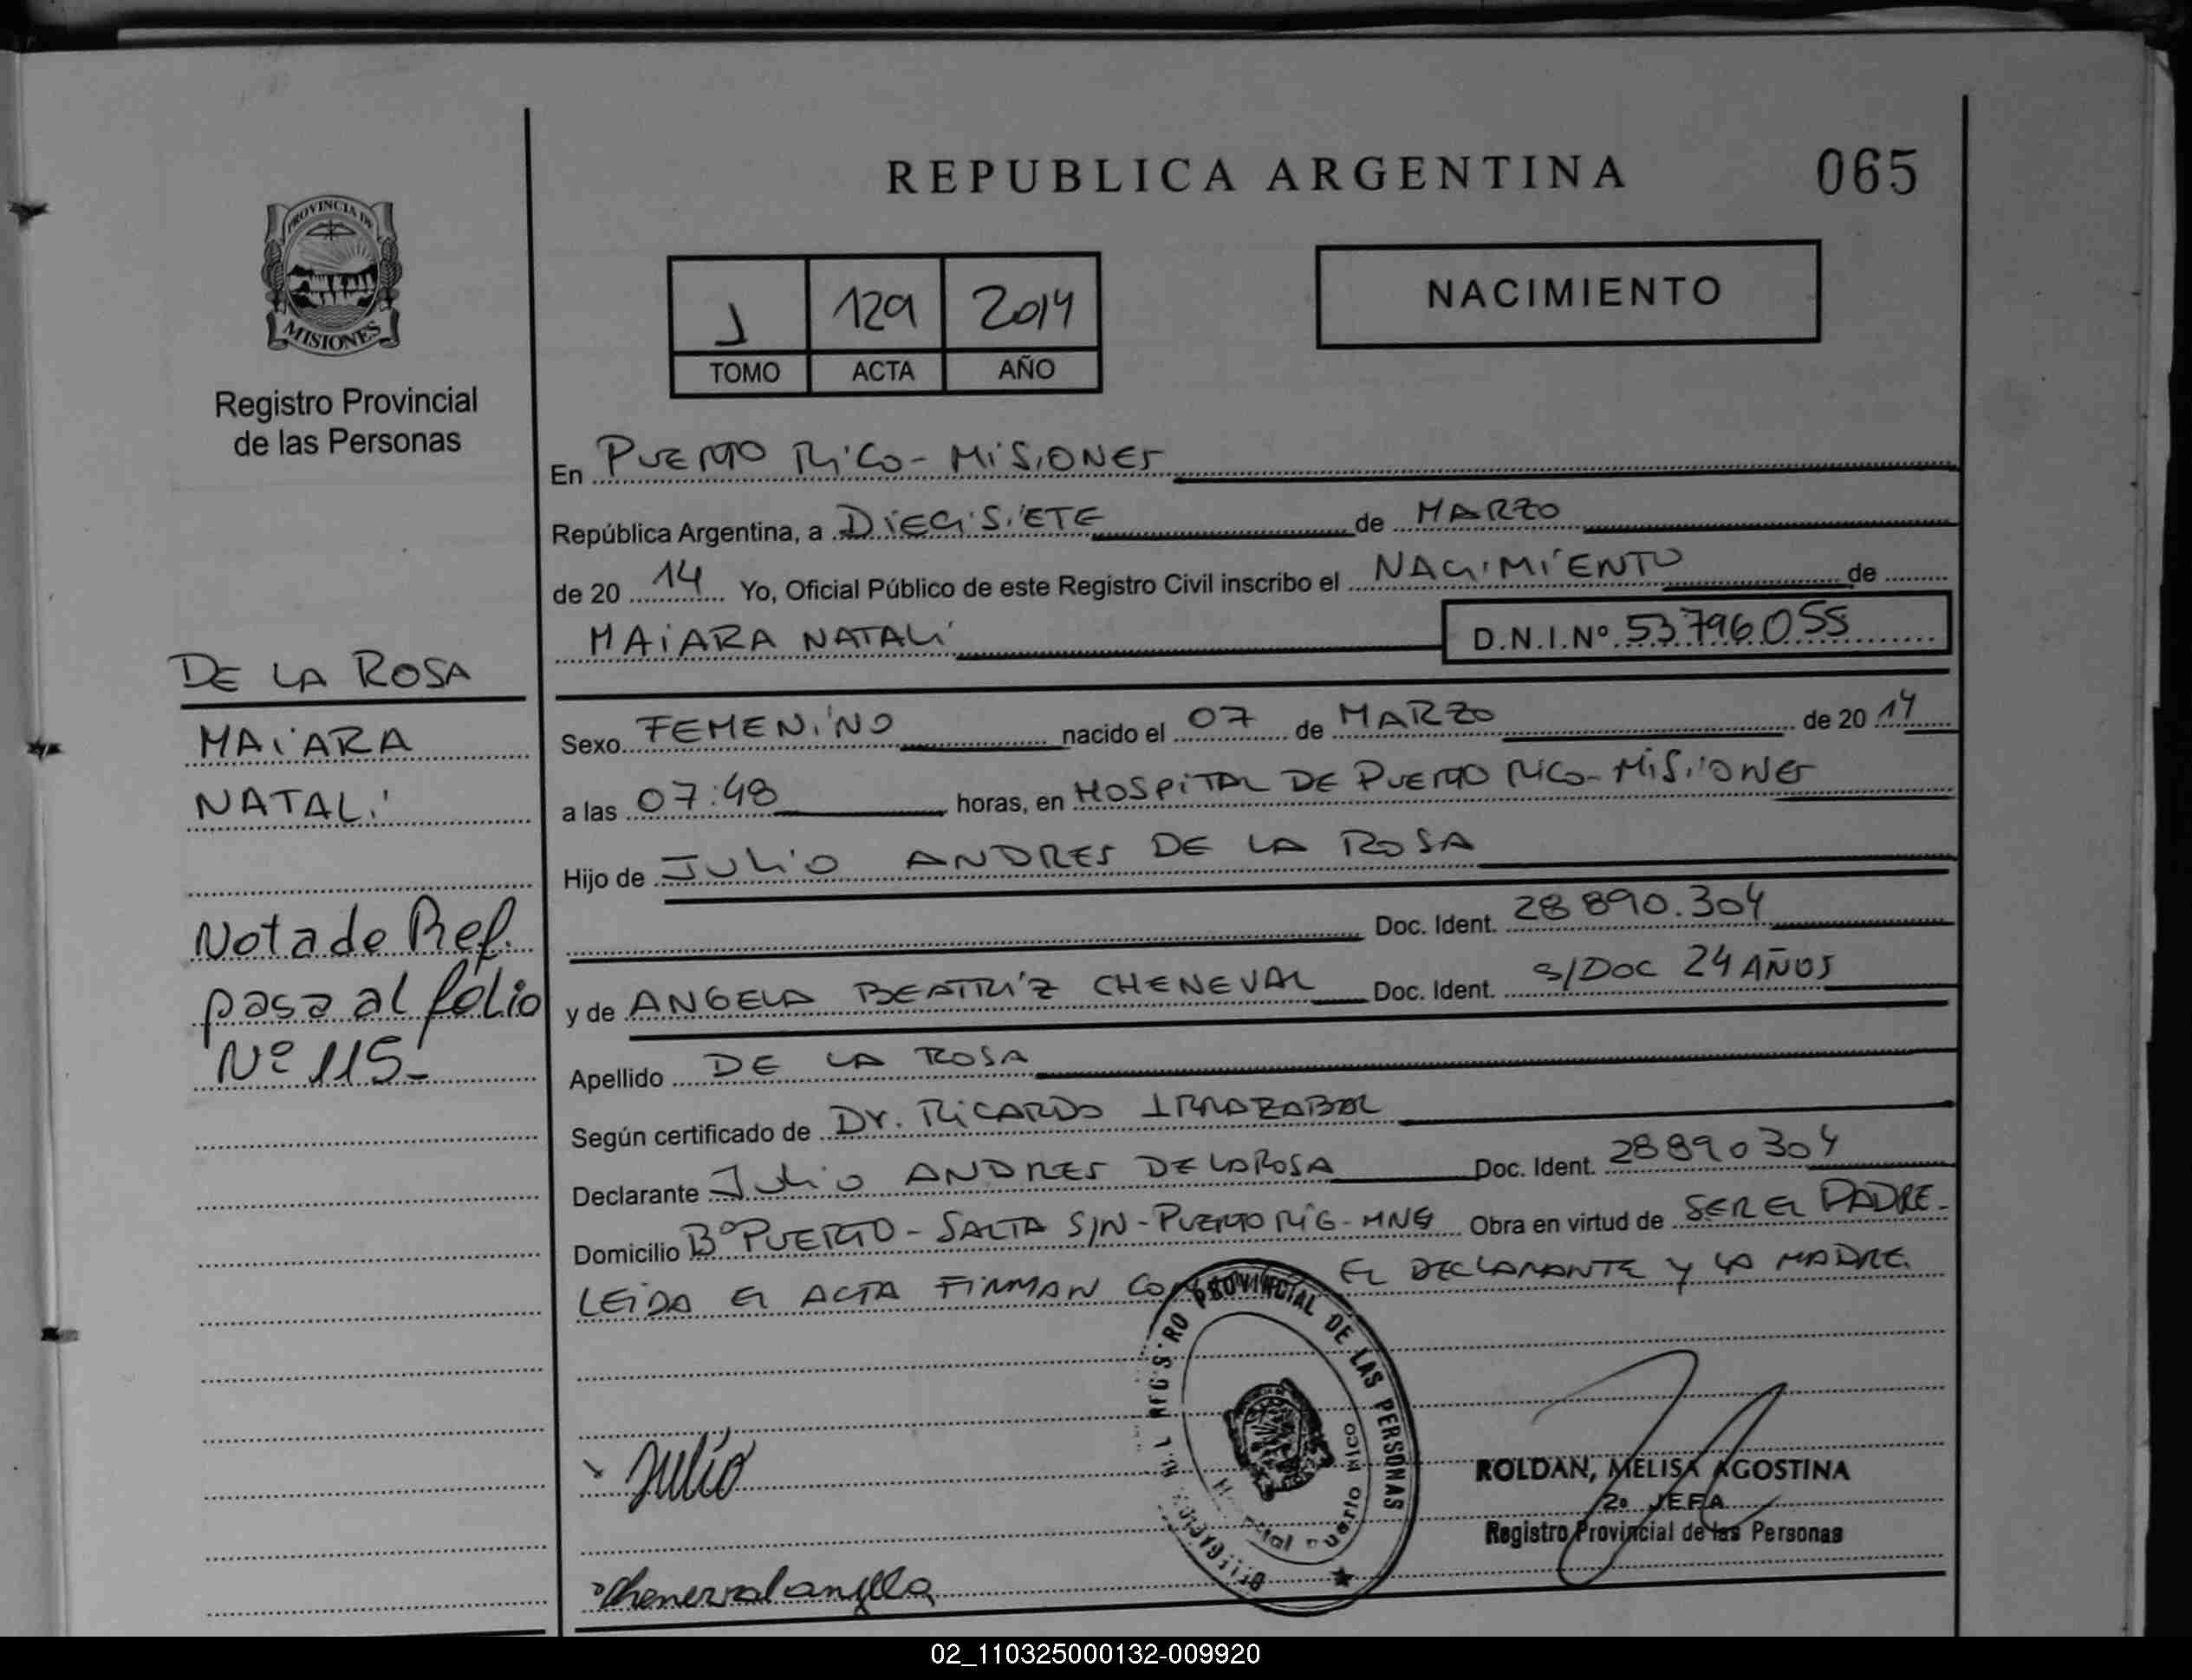 REPUBLICA ARGENTINA
065
PROVINCIA DE
MISIONES
Registro Provincial
de las Personas
J 129 2014
TOMO ACTA AÑO
NACIMIENTO
En PUERTO RICO - MISIONES
República Argentina, a DIECISIETE de MARZO
de 20 14 Yo, Oficial Público de este Registro Civil inscribo el NACIMIENTO de
MAIARA NATALI D.N.I.Nº 53.796.055
DE LA ROSA
MAIARA
NATALI
Nota de Ref.
pasa al folio
Nº 115-
Sexo FEMENINO nacido el 07 de MARZO de 20 14
a las 07:48 horas, en HOSPITAL DE PUERTO RICO - MISIONES
Hijo de JULIO ANDRES DE LA ROSA
Doc. Ident. 28 890.304
y de ANGELA BEATRIZ CHENEVAL Doc. Ident. S/DOC 24 AÑOS
Apellido DE LA ROSA
Según certificado de Dr. RICARDO IRRAZABAL
Declarante JULIO ANDRES DE LA ROSA Doc. Ident. 28890304
Domicilio Bº PUERTO - SALTA S/N - PUERTO RICO - MNES Obra en virtud de SER EL PADRE -
LEIDA EL ACTA FIRMAN EL DECLARANTE Y LA MADRE.
PROVINCIAL DE LAS PERSONAS
Julio
ROLDAN, MELISA AGOSTINA
2º JEFA
Registro Provincial de las Personas
02_110325000132-009920